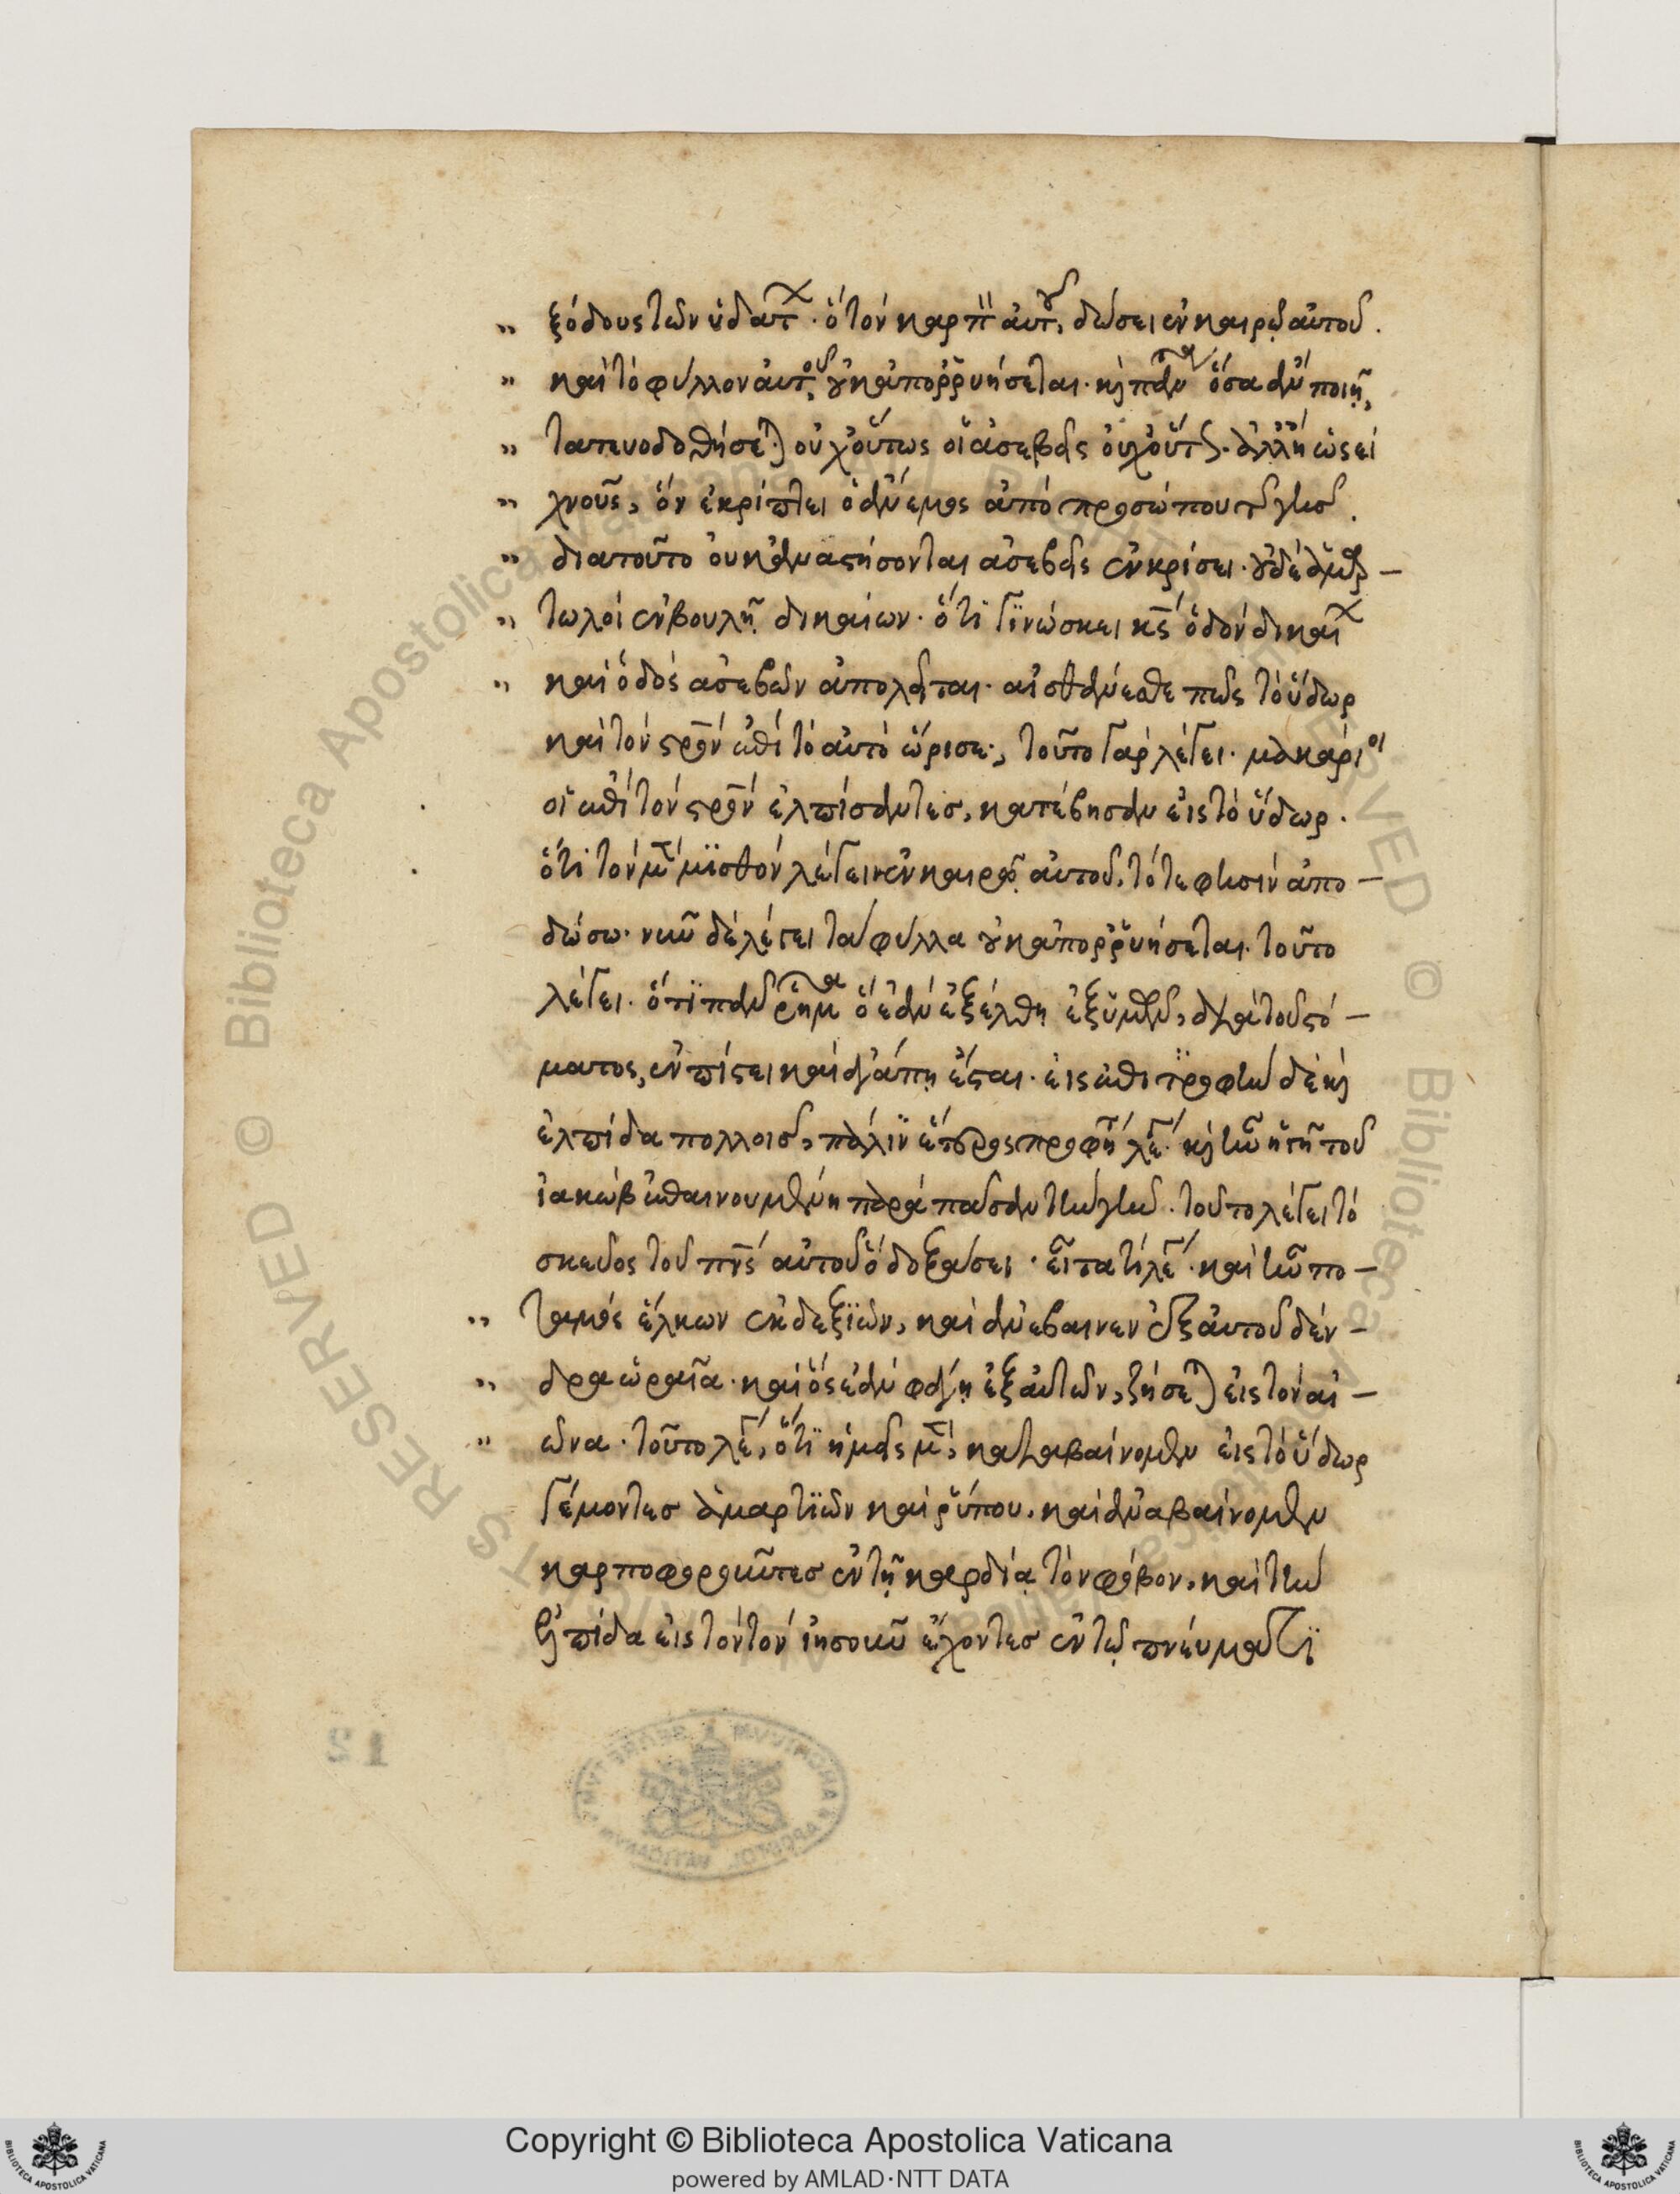 ξόδους τῶν ὑδάτ· ὁ τὸν καρπ αὐτ, δώσει ἐν καιρῷ αὐτοῦ.
καὶ τὸ φύλλον αὐτοῦ οὐκ ἀπορρυήσεται· κὶ πάντα ὅσα ἂν ποιῇ,
κατευοδοθήσεται οὐχ οὕτως οἱ ἀσεβεῖς οὐχ οὕτως· ἀλλ' ἢ ὡσεὶ
χνοῦς, ὃν ἐκρίπτει ὁ ἄνεμος ἀπὸ προσώπου τῆς γῆς.
διατοῦτο οὐκ ἀναστήσονται ἀσεβεῖς ἐν κρίσει· οὐδὲ ἁμαρ-
τωλοὶ ἐν βουλῇ δικαίων· ὅτι γινώσκει κς ὁδὸν δικαί
καὶ ὁδὸς ἀσεβῶν ἀπολεῖται· αἰσθάνεσθε πῶς τὸ ὕδωρ
καὶ τὸν σρον ἐπὶ τὸ αὐτὸ ὥρισε·, τοῦτο γὰρ λέγει· μακάριοι
οἳ ἐπὶ τὸν σρον ἐλπίσαντες, κατέβησαν εἰς τὸ ὕδωρ·
ὅτι τὸν μ μισθὸν λέγει ἐν καιρῷ αὐτοῦ, τότε φησὶν ἀπο-
δώσω· νῦν δὲ λέγει τὰ φύλλα οὐκ ἀπορρυήσεται· τοῦτο
λέγει· ὅτι πᾶν ῥῆμα ὃ ἐὰν ἐξέλθη ἐξ ὑμῶν, διὰ τοῦ στό-
ματος, ἐν πίστει καὶ ἀγάπῃ ἔσται· εἰς ἐπιτροφὴν δὲ κὶ
ἐλπίδα πολλοῖς, πάλιν ἕτερος προφή λέ· κὶ ἦν ἡ γῆ τοῦ
ἰακὼβ ἐπαινουμένη παρὰ πᾶσαν τὴν γῆν· τοῦτο λέγει τὸ
σκεῦος τοῦ πνς αὐτοῦ ὃ δοξάσει· εἶτα τί λέ· καὶ ἦν πο-
ταμὸς ἕλκων ἐκ δεξιῶν, καὶ ἀνέβαινεν ἐξ αὐτοῦ δέν-
δρα ὡραῖα· καὶ ὃς ἐὰν φάγῃ ἐξ αὐτῶν, ζήσεται εἰς τὸν αἰ-
ῶνα· τοῦτο λέ, ὅτι ἡμεῖς μ, καταβαίνομεν εἰς τὸ ὕδωρ
γέμοντες ἁμαρτιῶν καὶ ῥύπου, καὶ ἀναβαίνομεν
καρποφοροῦντες ἐν τῇ καρδίᾳ τὸν φόβον, καὶ τὴν
ἐλπίδα εἰς τὸν τὸν ἰησοῦν ἔχοντες ἐν τῷ πνεύματι
12
Copyright © Biblioteca Apostolica Vaticana
powered by AMLAD·NTT DATA